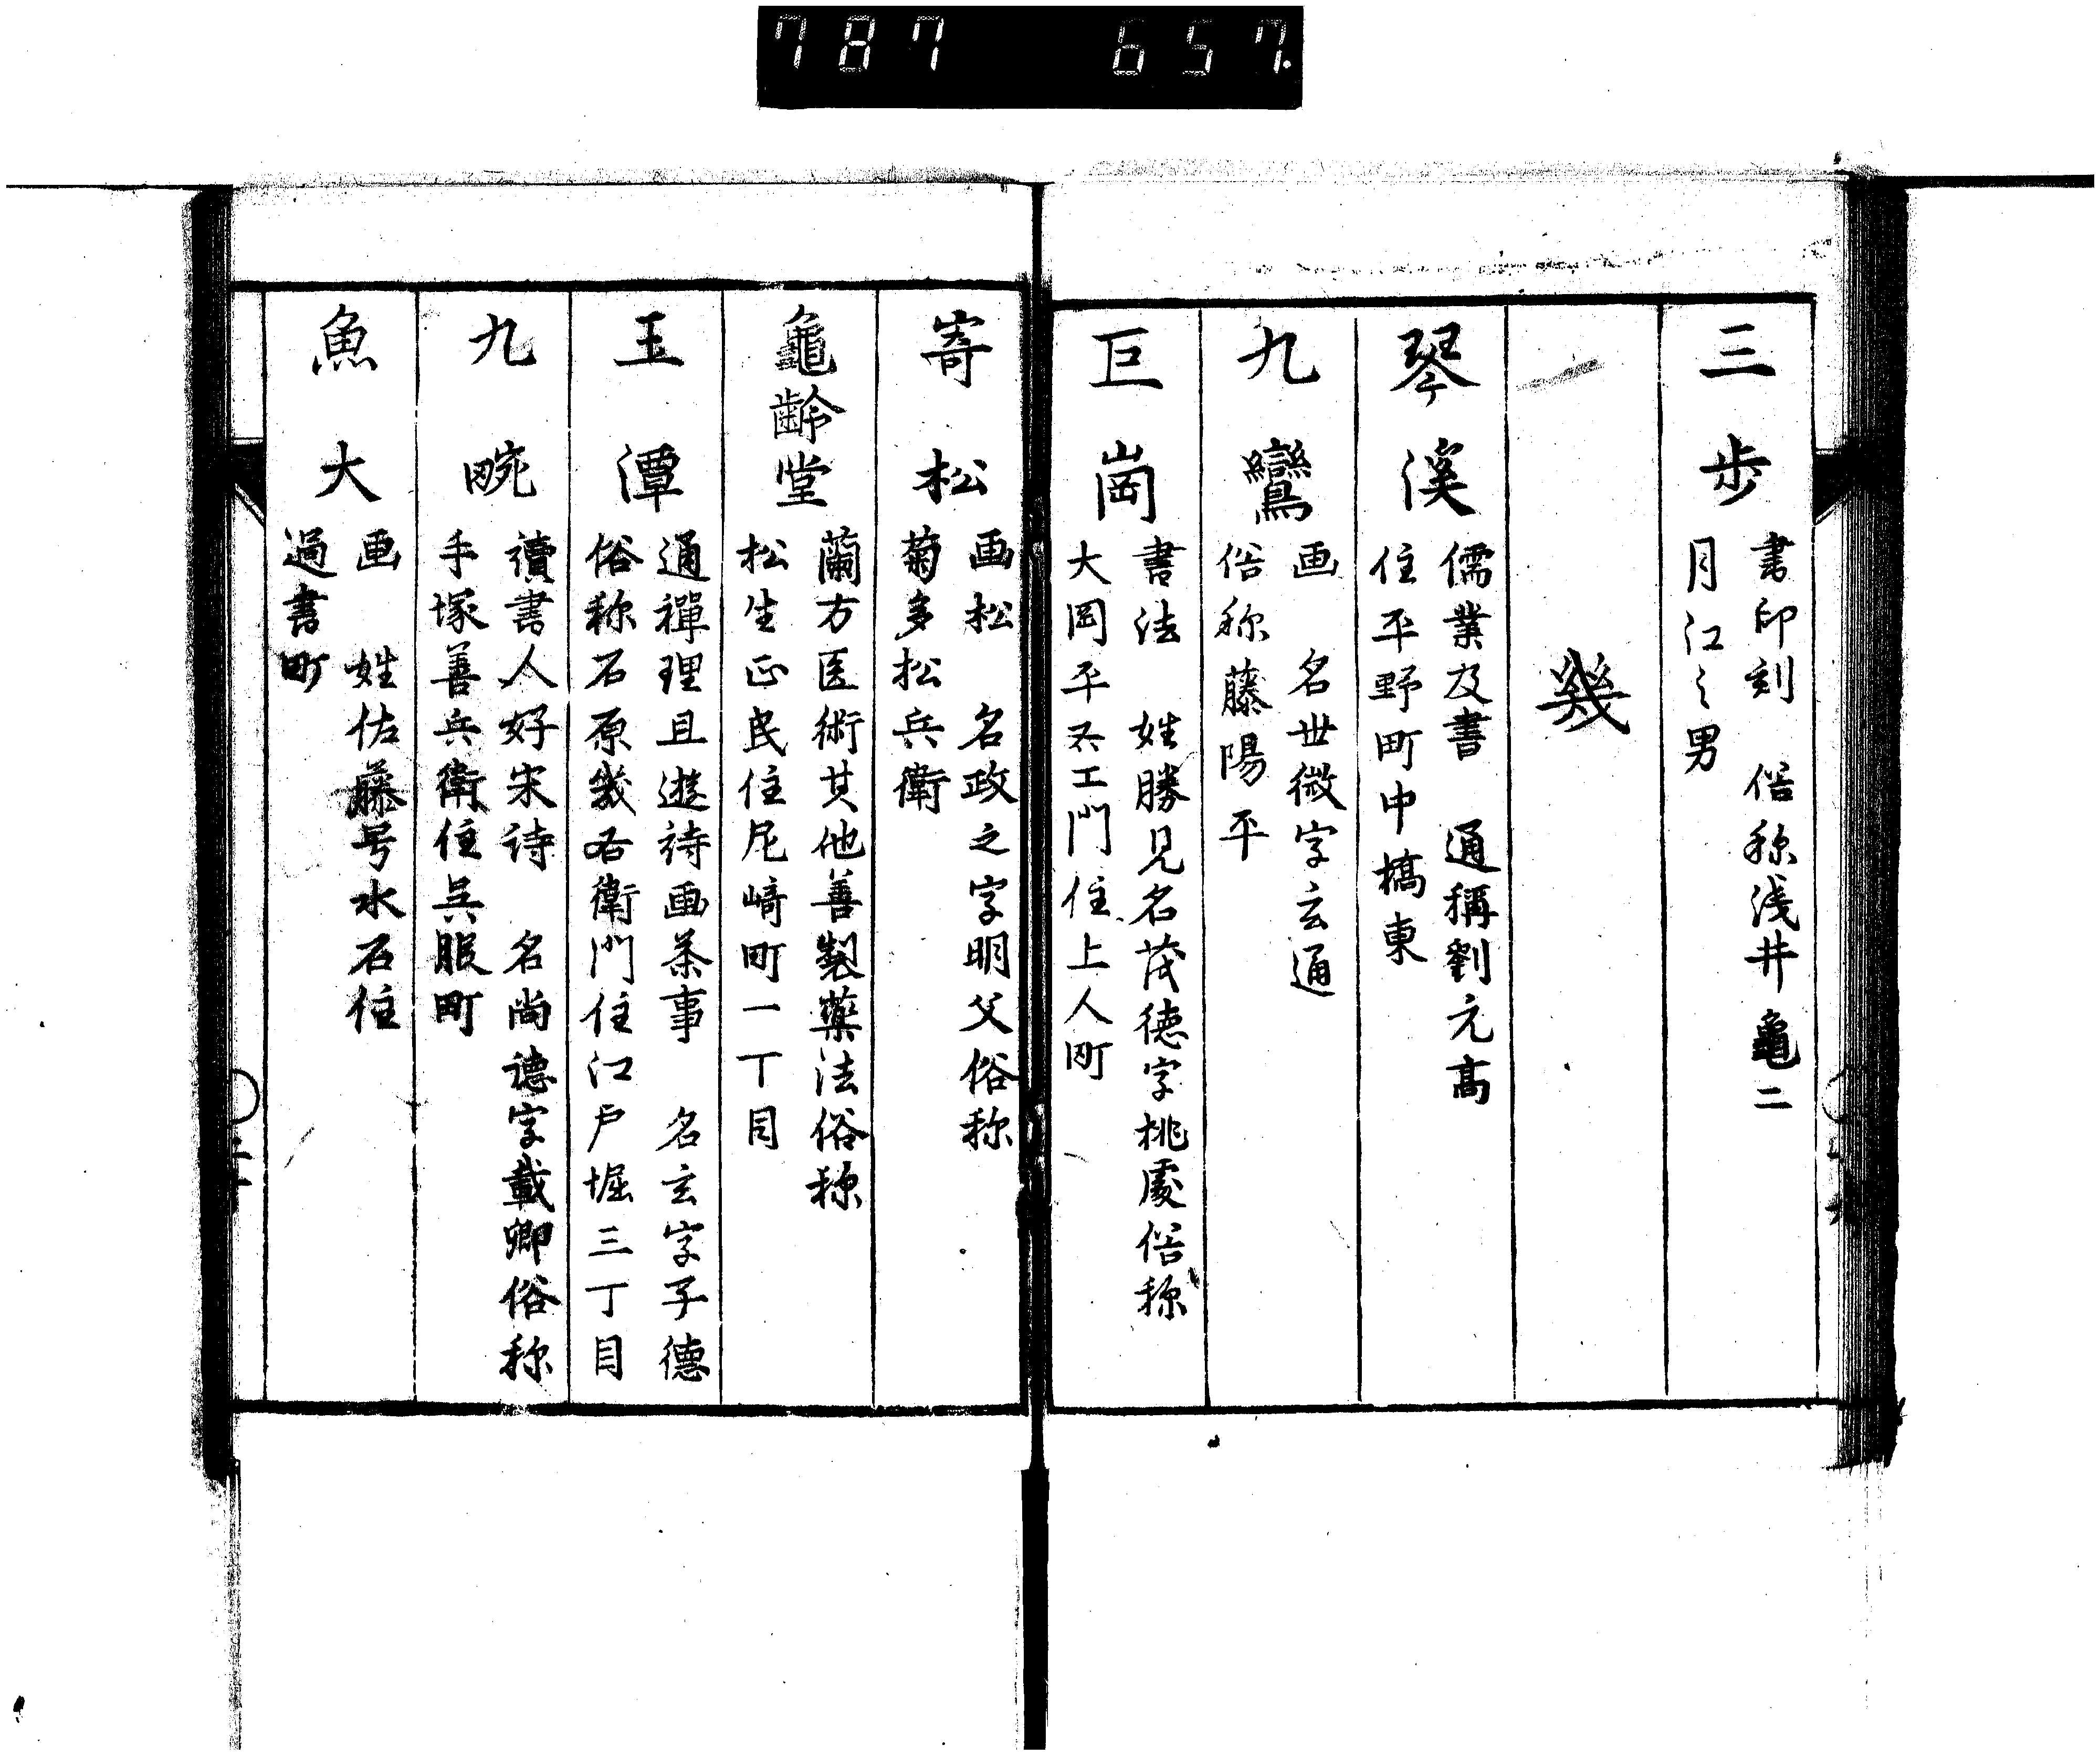 787 657.
三歩
書印刻 俗称浅井龜二
月江之男
幾
琴溪
儒業及書 通稱劉元高
住平野町中橋東
九鸞
画 名世微字玄通
俗称藤陽平
巨崗
書法 姓勝見名茂徳字桃處俗称
大岡平右エ門住上人町
寄松
画松 名政之字明父俗称
菊多松兵衛
龜齢堂
蘭方医術其他善製藥法俗称
松生正民住尼﨑町一丁目
玉潭
通禪理且遊詩画茶事 名玄字子德
俗称石原幾右衛門住江戸堀三丁目
九畹
讀書人好宋詩 名尚德字載卿俗称
手塚善兵衛住呉服町
魚大
画 姓佐藤号水石住
過書町